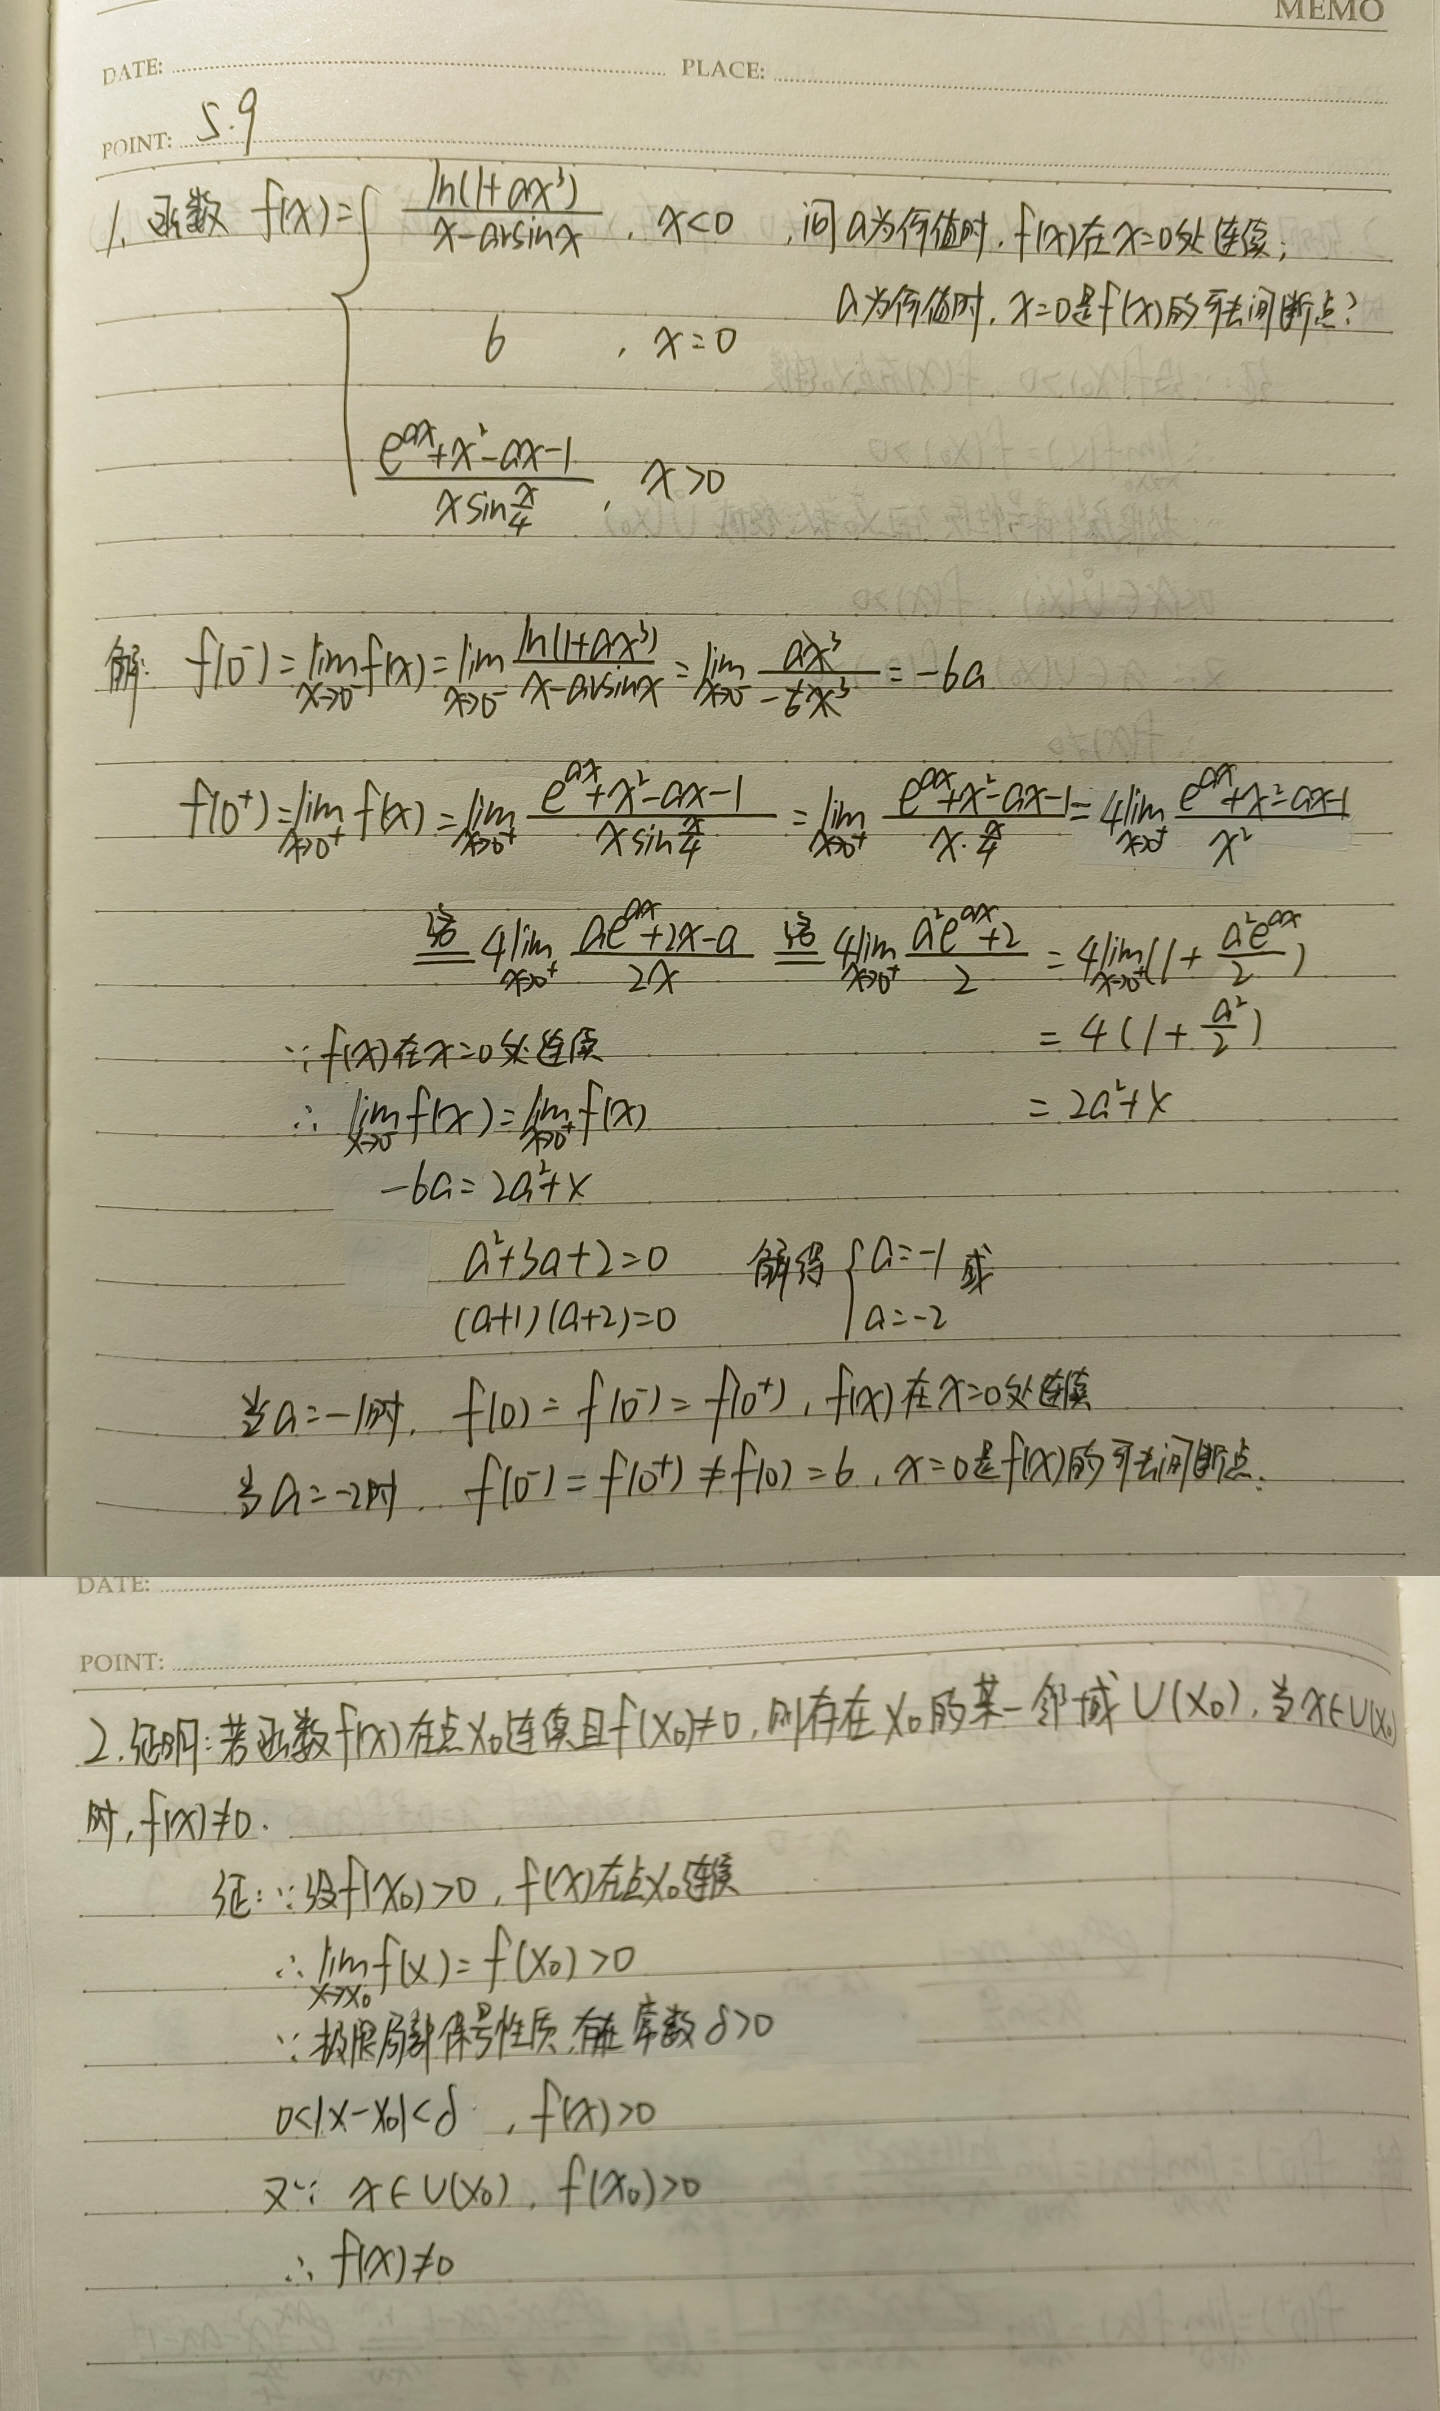 MEMO
DATE: PLACE:
POINT: 5.9
1. 函数 f(x)={ ln(1+ax³)/(x-arcsinx), x<0 ,问a为何值时,f(x)在x=0处连续;
a为何值时,x=0是f(x)的可去间断点?
6 , x=0
(e^(ax)+x²-ax-1)/(x sin(x/4)), x>0
解: f(0⁻)=lim(x→0⁻) f(x)=lim(x→0⁻) ln(1+ax³)/(x-arcsinx)=lim(x→0⁻) ax³/(-1/6 x³)=-6a
f(0⁺)=lim(x→0⁺) f(x)=lim(x→0⁺) (e^(ax)+x²-ax-1)/(x sin(x/4))=lim(x→0⁺) (e^(ax)+x²-ax-1)/(x·x/4)=4lim(x→0⁺) (e^(ax)+x²-ax-1)/x²
洛= 4lim(x→0⁺) (ae^(ax)+2x-a)/(2x) 洛= 4lim(x→0⁺) (a²e^(ax)+2)/2 = 4lim(x→0⁺) (1+a²e^(ax)/2)
= 4(1+a²/2)
∵ f(x)在x=0处连续
= 2a²+4
∴ lim(x→0⁻) f(x)=lim(x→0⁺) f(x)
-6a=2a²+4
a²+3a+2=0 解得{ a=-1 或
(a+1)(a+2)=0 a=-2
当a=-1时, f(0)=f(0⁻)=f(0⁺), f(x)在x=0处连续
当a=-2时, f(0⁻)=f(0⁺)≠f(0)=6, x=0是f(x)的可去间断点.
DATE:
POINT:
2.证明:若函数f(x)在点x₀连续且f(x₀)≠0,则存在x₀的某一邻域U(x₀),当x∈U(x₀)
时,f(x)≠0.
证:∵设f(x₀)>0, f(x)在点x₀连续
∴ lim(x→x₀) f(x)=f(x₀)>0
∵极限局部保号性质,存在常数δ>0
0<|x-x₀|<δ, f(x)>0
又∵ x∈U(x₀), f(x₀)>0
∴ f(x)≠0